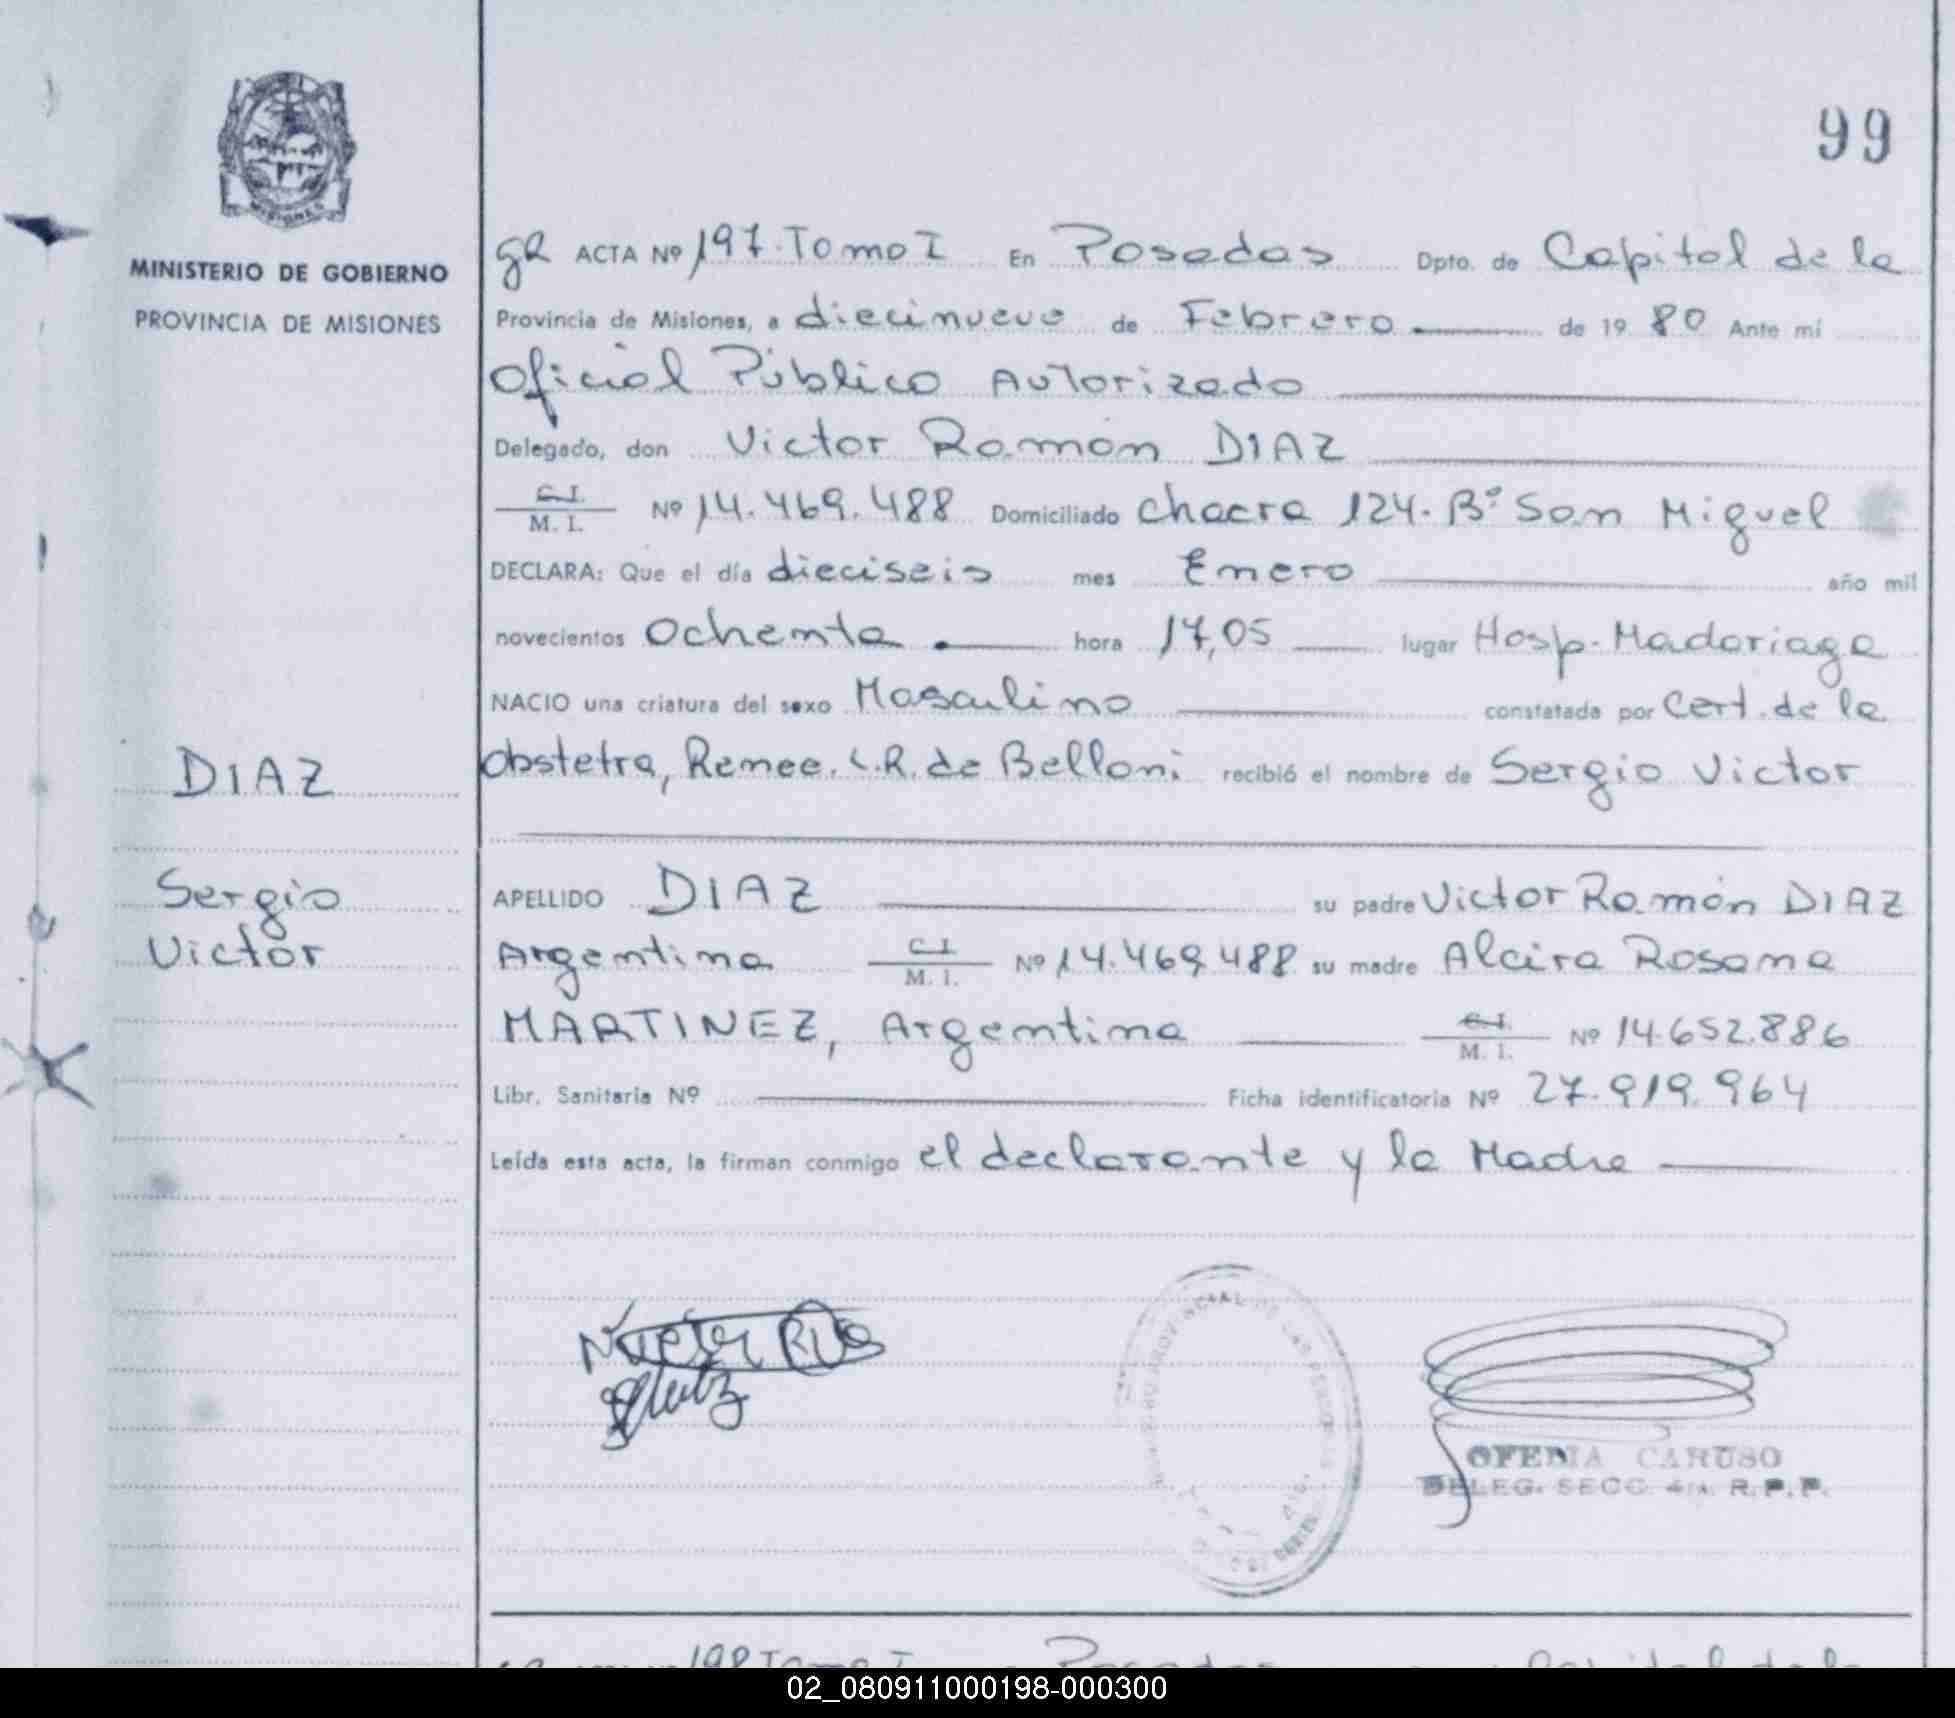 99
MINISTERIO DE GOBIERNO
PROVINCIA DE MISIONES
ga ACTA Nº 197. Tomo I En Posadas Dpto. de Capital de la
Provincia de Misiones, a diecinueve de Febrero de 1980 Ante mí
Oficial Público Autorizado
Delegado, don Victor Ramón DIAZ
C.I. M. I. Nº 14.469.488 Domiciliado Chacra 124. Bº San Miguel
DECLARA: Que el día dieciseis mes Enero año mil
novecientos Ochenta hora 17,05 lugar Hosp. Madariaga
NACIO una criatura del sexo Masculino constatada por Cert. de la
Obstetra, Renee. L.R. de Belloni recibió el nombre de Sergio Victor
DIAZ
Sergio
Victor
APELLIDO DIAZ su padre Victor Ramón DIAZ
Argentina C.I. M. I. Nº 14.469.488 su madre Alcira Rosana
MARTINEZ, Argentina C.I. M. I. Nº 14.652.886
Libr. Sanitaria Nº Ficha identificatoria Nº 27.919.964
Leída esta acta, la firman conmigo el declarante y la Madre
OFELIA CARUSO
DELEG. SECC. 4/A. R.P.P.
198 Tomo I Posadas Capital de la
02_080911000198-000300